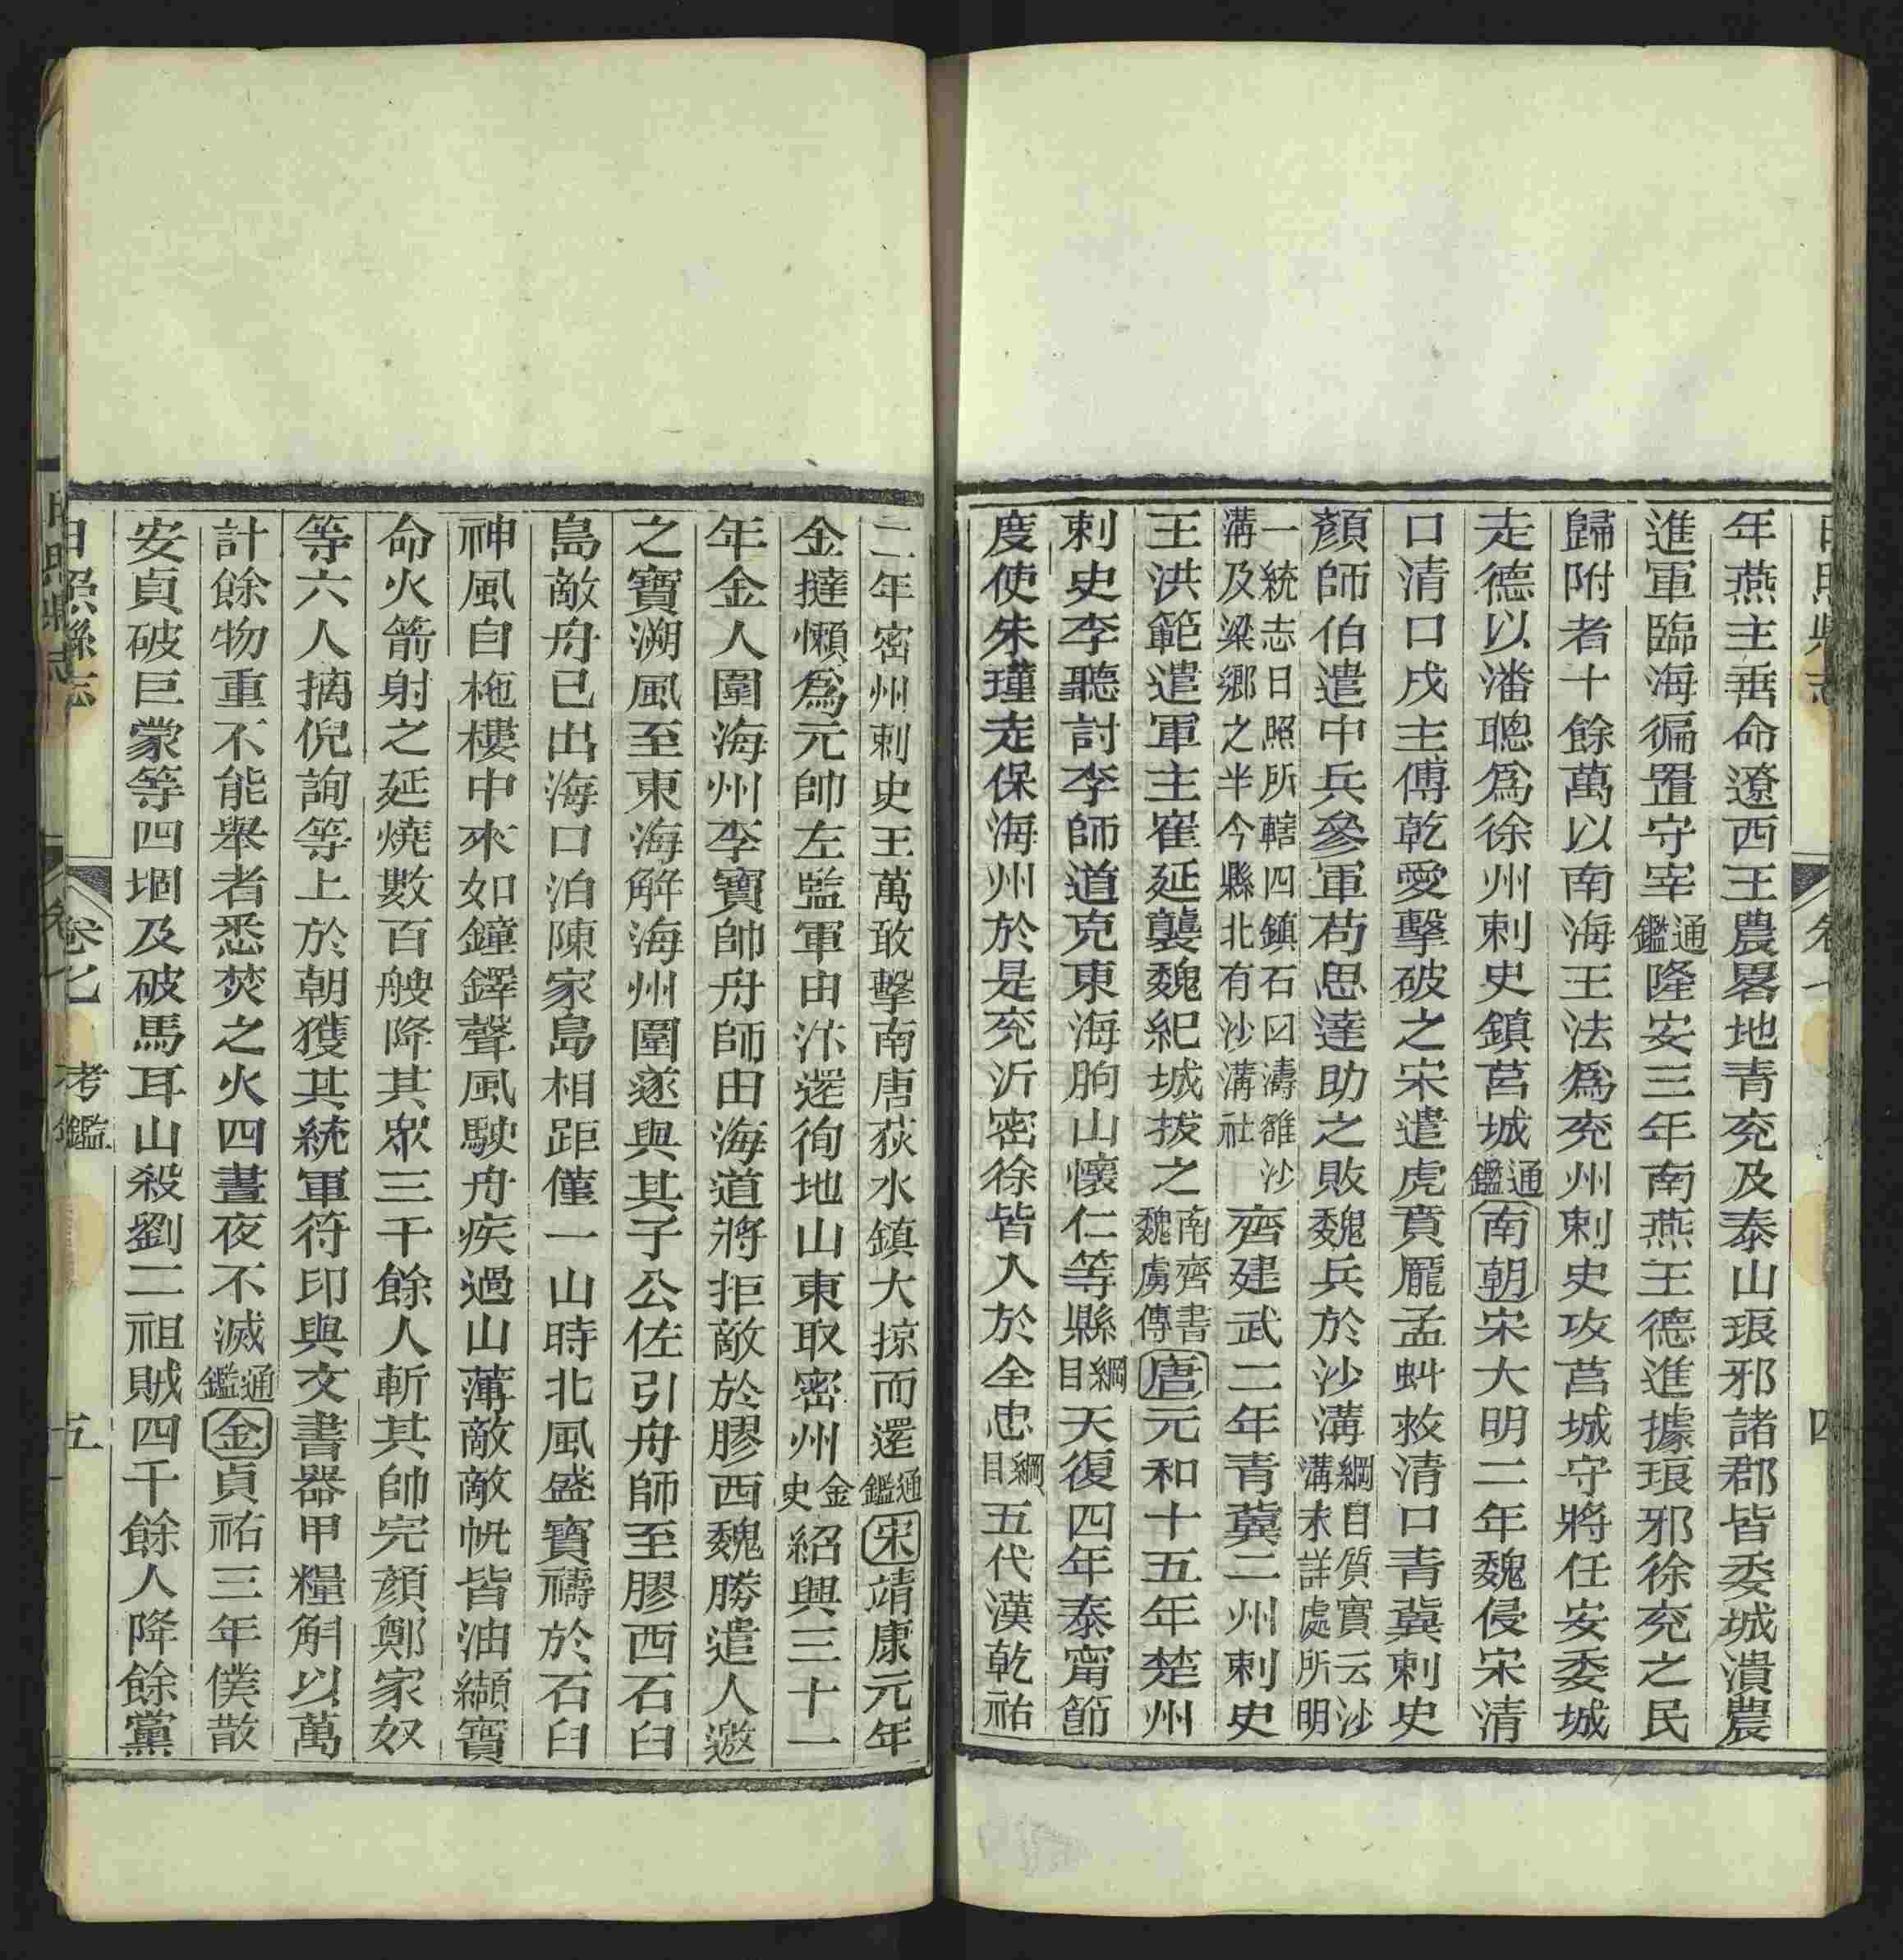 年燕主垂命遼西王農畧地青兖及泰山琅邪諸郡皆委城潰農
進軍臨海徧置守宰通鑑隆安三年南燕王德進據琅邪徐兖之民
歸附者十餘萬以南海王法爲兖州刺史攻莒城守將任安委城
走德以潘聰爲徐州刺史鎮莒城通鑑南朝宋大明二年魏侵宋清
口清口戍主傅乾愛擊破之宋遣虎賁龐孟虯救清口青冀刺史
顏師伯遣中兵參軍苟思達助之敗魏兵於沙溝綱目質實云沙溝未詳處所明
一統志日照所轄四鎮石臼濤雒沙溝及梁鄉之半今縣北有沙溝社齊建武二年青冀二州刺史
王洪範遣軍主崔延襲魏紀城拔之南齊書魏虜傳唐元和十五年楚州
刺史李聽討李師道克東海朐山懷仁等縣綱目天復四年泰甯節
度使朱瑾走保海州於是兖沂密徐皆入於全忠綱目五代漢乾祐
二年密州刺史王萬敢擊南唐荻水鎮大掠而還通鑑宋靖康元年
金撻懶爲元帥左監軍由汴還徇地山東取密州金史紹興三十一
年金人圍海州李寶帥舟師由海道將拒敵於膠西魏勝遣人邀
之寶溯風至東海解海州圍遂與其子公佐引舟師至膠西石臼
島敵舟已出海口泊陳家島相距僅一山時北風盛寶禱於石臼
神風自柂樓中來如鐘鐸聲風駛舟疾過山薄敵敵帆皆油纈寶
命火箭射之延燒數百艘降其眾三千餘人斬其帥完顏鄭家奴
等六人擒倪詢等上於朝獲其統軍符印與文書器甲糧斛以萬
計餘物重不能舉者悉焚之火四晝夜不滅通鑑金貞祐三年僕散
安貞破巨蒙等四堌及破馬耳山殺劉二祖賊四千餘人降餘黨
日照縣志 卷七 考鑑 五